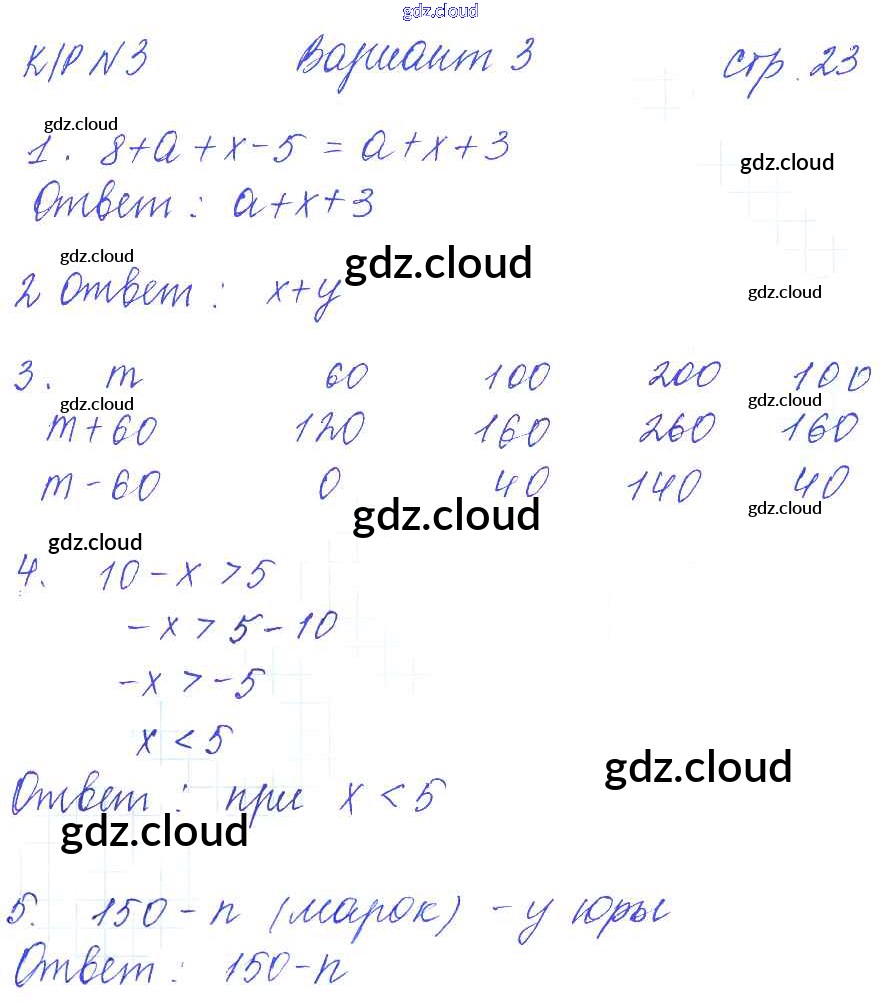 gdz.cloud
К/Р №3 Вариант 3 стр. 23
gdz.cloud
1. 8+a+x-5 = a+x+3
gdz.cloud
Ответ: a+x+3
gdz.cloud
gdz.cloud
2 Ответ: x+y
gdz.cloud
3. m 60 100 200 100
gdz.cloud
gdz.cloud
m+60 120 160 260 160
m-60 0 40 140 40
gdz.cloud
gdz.cloud
gdz.cloud
4. 10-x>5
-x>5-10
-x>-5
x<5
gdz.cloud
Ответ: при x<5
gdz.cloud
5. 150-n (марок) - у Юры
Ответ: 150-n